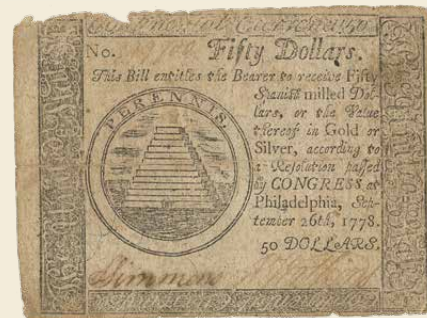 Continental Currency
No. Fifty Dollars.
This Bill entitles the Bearer to receive Fifty
Spanish milled Dol-
lars, or the Value
thereof in Gold or
Silver, according to
a Resolution passed
by CONGRESS at
Philadelphia, Sep-
tember 26th, 1778.
50 DOLLARS.
PERENNIS.
Simmons